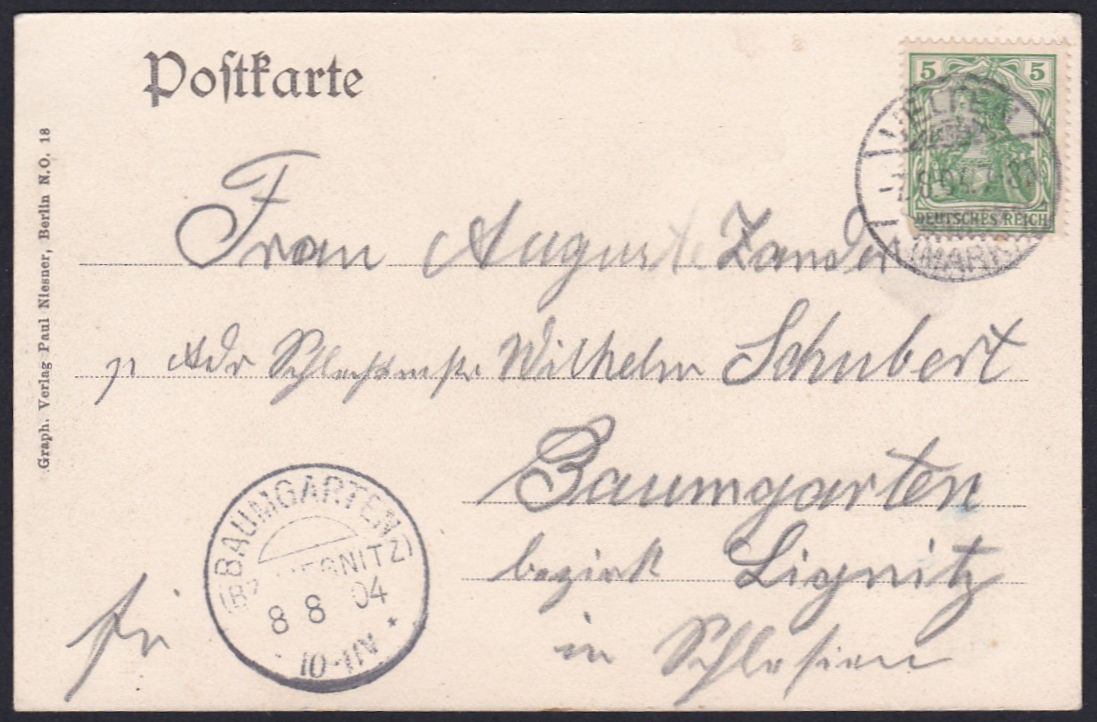 Postkarte
5 5
DEUTSCHES REICH
VELTEN
(MARK)
Graph. Verlag Paul Niesner, Berlin N.O. 18
Frau Auguste Zander
Adr Wilhelm Schubert
Baumgarten
bezirk Lignitz
in Schlesien
BAUMGARTEN
(BZ. LIEGNITZ)
8 8 04
10-11V